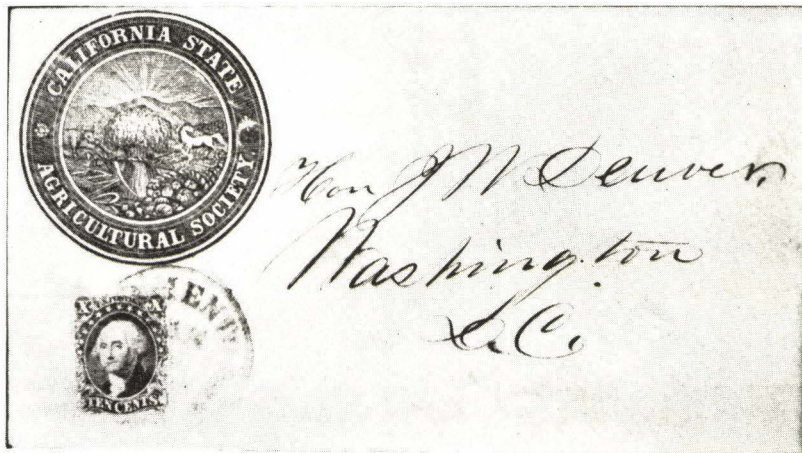 CALIFORNIA STATE
AGRICULTURAL SOCIETY.
Hon J W Denver
Washington
D.C.
X X
TEN CENTS.